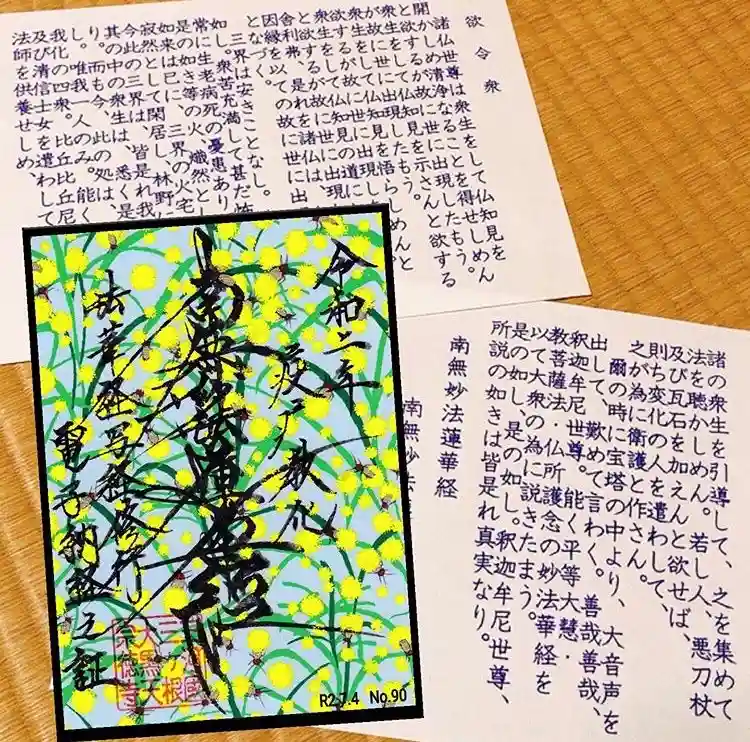 欲令衆
諸仏世尊は衆生をして仏知見を
開かしめ清浄なることを得せしめん
と欲するが故に世に出現したもう
衆生に仏知見を示さんと欲する
が故に世に出現したもう
衆生をして仏知見を悟らしめんと
欲するが故に世に出現
衆生をして仏知見の道
と欲するが故に世に出現
舎利弗是れを諸仏は
因縁
と
三界は安きことなし
衆苦充満して甚だ怖
常に生老病死の憂患あり
是の如き等の火熾然と
如来は已に三界の火宅
寂然として閑居し林野に
今此の三界は皆是れ我
其の中の衆生は悉く是
而も今此の処は
り。唯我一人のみ能く
我化の四衆、比丘比丘尼
及び清信士女を遣わして
法師を供養せしめ
諸の衆生を引導して、之を集めて
法を聴かしめん。若し人、悪刀杖
及び瓦石を加えんと欲せば、
則ち変化の人を遣わして、
之が為に衛護と作さん。
爾の時に宝塔の中より、大音声を
出して歎めて言わく。善哉善哉、
釈迦牟尼世尊、能く平等大慧・
教菩薩法・仏所護念の妙法華経を
以て大衆の為に説きたもう。
是の如し、是の如し。釈迦牟尼世尊、
所説の如きは皆是れ真実なり。
南無妙法蓮華経
南無妙法
令和二年
南無妙法蓮華経
法華経写経修行
電子納経之証
大黒天
R2.7.4 No.90